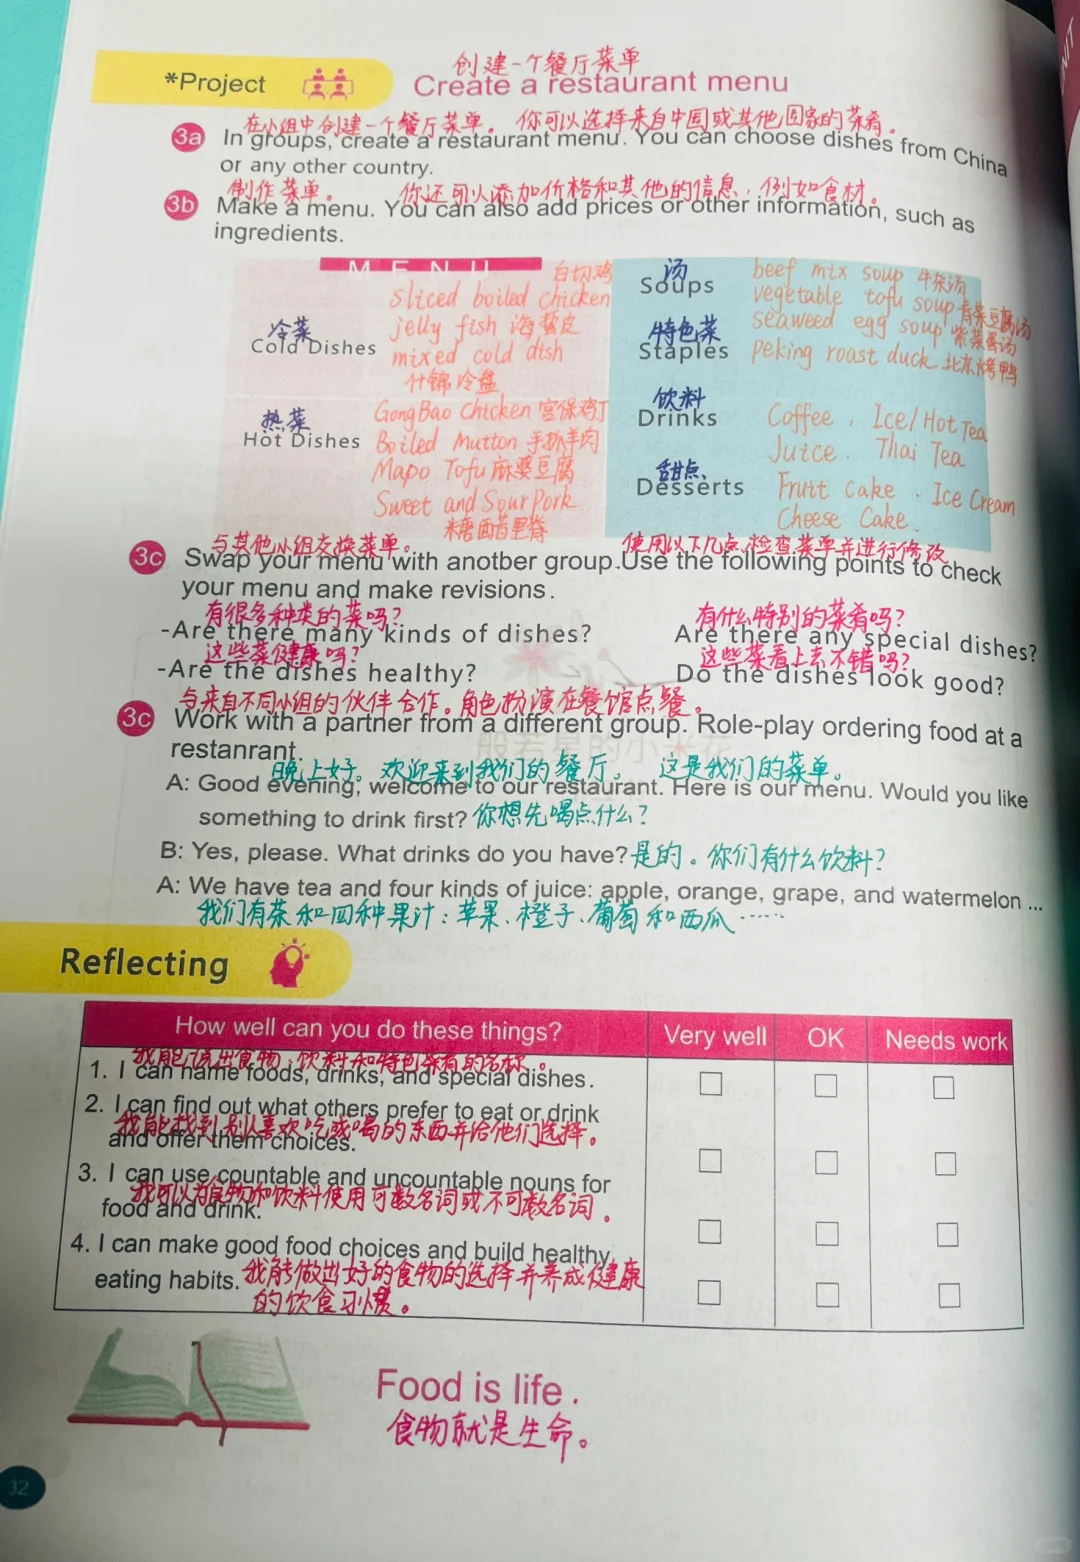 创建一个餐厅菜单
*Project
Create a restaurant menu
在小组中创建一个餐厅菜单。你可以选择来自中国或其他国家的菜肴。
3a In groups, create a restaurant menu. You can choose dishes from China
or any other country.
制作菜单。 你还可以添加价格和其他的信息,例如食材。
3b Make a menu. You can also add prices or other information, such as
ingredients.
MENU
白切鸡
sliced boiled chicken
jelly fish 海蜇皮
冷菜
Cold Dishes
mixed cold dish
什锦冷盘
GongBao Chicken 宫保鸡丁
热菜
Hot Dishes
Boiled Mutton 手抓羊肉
Mapo Tofu 麻婆豆腐
Sweet and Sour Pork
糖醋里脊
汤
Soups
beef mix soup 牛杂汤
vegetable tofu soup 青菜豆腐汤
seaweed egg soup 紫菜蛋汤
特色菜
Staples
peking roast duck 北京烤鸭
饮料
Drinks
Coffee, Ice/Hot Tea
Juice. Thai Tea
甜点、
Desserts
Fruit Cake、Ice Cream
Cheese Cake.
与其他小组交换菜单。 使用以下几点检查菜单并进行修改
3c Swap your menu with anotber group.Use the following points to check
your menu and make revisions.
有很多种类的菜吗? 有什么特别的菜肴吗?
-Are there many kinds of dishes? Are there any special dishes?
这些菜健康吗? 这些菜看上去不错吗?
-Are the dishes healthy? Do the dishes look good?
与来自不同小组的伙伴合作。角色扮演在餐馆点餐。
3c Work with a partner from a different group. Role-play ordering food at a
restanrant.
般若星的小米花
晚上好。欢迎来到我们的餐厅。 这是我们的菜单。
A: Good evening, welcome to our restaurant. Here is our menu. Would you like
something to drink first? 你想先喝点什么?
B: Yes, please. What drinks do you have? 是的。你们有什么饮料?
A: We have tea and four kinds of juice: apple, orange, grape, and watermelon ...
我们有茶和四种果汁:苹果、橙子、葡萄和西瓜……
Reflecting
How well can you do these things? Very well OK Needs work
我能说出食物、饮料和特色菜肴的名称。
1. I can name foods, drinks, and special dishes.
2. I can find out what others prefer to eat or drink
我能找到别人喜欢吃或喝的东西并给他们选择。
and offer them choices.
3. I can use countable and uncountable nouns for
我可以为食物和饮料使用可数名词或不可数名词。
food and drink.
4. I can make good food choices and build healthy
eating habits. 我能做出好的食物的选择并养成健康
的饮食习惯。
Food is life.
食物就是生命。
32